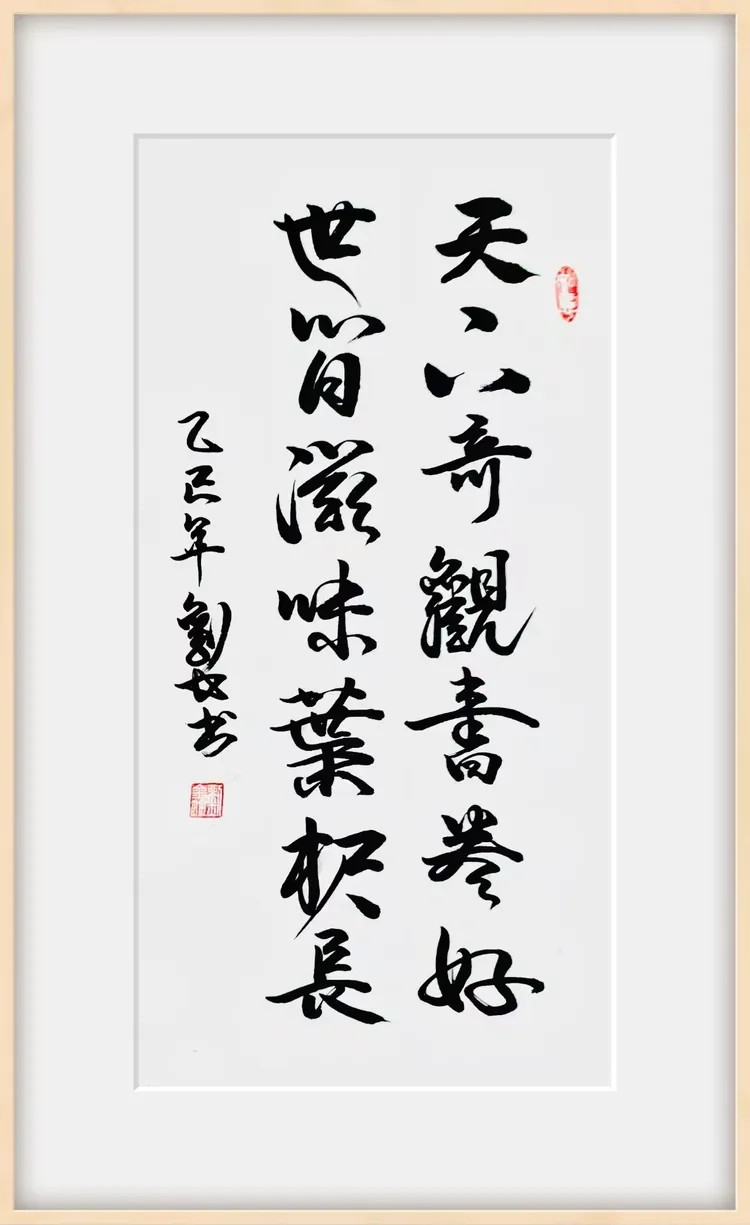 天下奇觀書卷好
世間滋味葉根長
乙巳年劉书